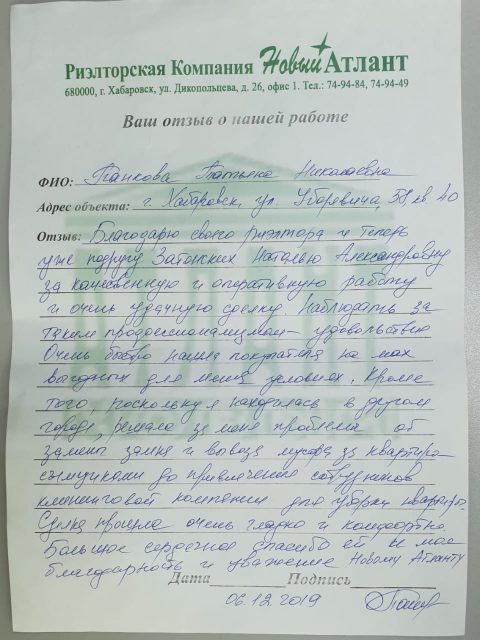 Риэлторская Компания Новый Атлант
680000, г. Хабаровск, ул. Дикопольцева, д. 26, офис 1. Тел.: 74-94-84, 74-94-49
Ваш отзыв о нашей работе
ФИО: Панкова Татьяна Николаевна
Адрес объекта: г. Хабаровск, ул Уборевича, 58, кв 40
Отзыв: Благодарю своего риэлтора и теперь
уже подругу Затонских Наталью Александровну
за качественную и оперативную работу
и очень удачную сделку. Наблюдать за
таким профессионализмом – удовольствие
Очень быстро нашла покупателя на мах
выгодных для меня условиях. Кроме
того, поскольку я находилась в другом
городе, решала за меня проблемы от
замены замка и вывоза мусора за квартира-
съемщиками до привлечения сотрудников
клининговой компании для уборки квартиры.
Сделка прошла очень гладко и комфортно.
Большое сердечное спасибо ей и моё
благодарность и уважение Новому Атланту
Дата Подпись
06.12.2019